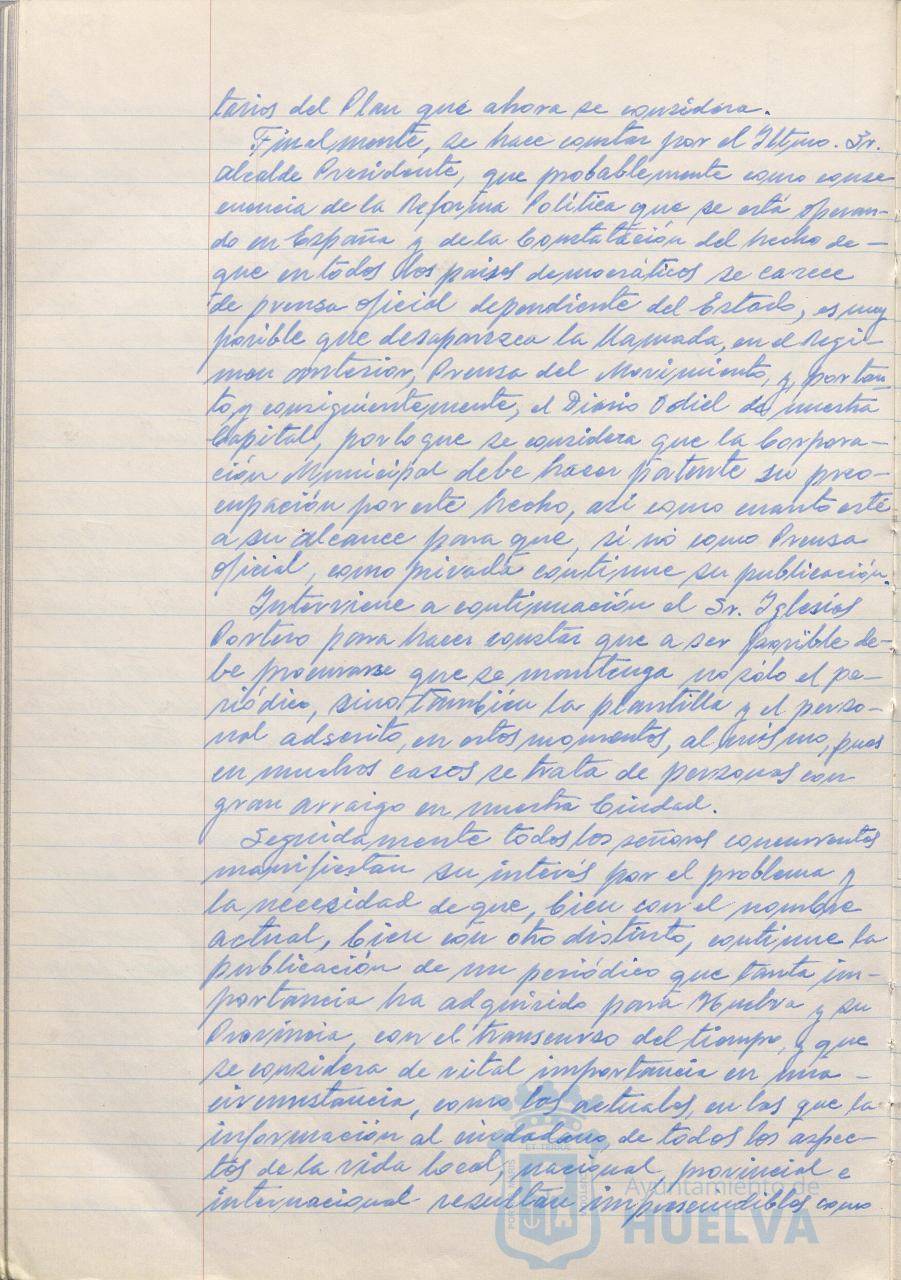 tarios del Plan que ahora se considera.
Finalmente, se hace constar por el Iltmo. Sr.
Alcalde Presidente, que probablemente como conse
cuencia de la Reforma Política que se está operan-
do en España y de la Constatación del hecho de-
que en todos los paises democráticos se carece
de prensa oficial dependiente del Estado, es muy
posible que desaparezca la llamada, en el Regi-
men anterior, Prensa del Movimiento, y, por tan-
to, y consiguientemente, el Diario Odiel de nuestra
Capital, por lo que se considera que la Corpora-
ción Municipal debe hacer patente su preo-
cupación por este hecho, así como cuanto esté
a su alcance para que, si no como Prensa
oficial, como privada continue su publicación.
Interviene a continuación el Sr. Iglesias
Portero para hacer constar que a ser posible de-
be procurarse que se mantenga no sólo el pe-
riódico, sino también la plantilla y el perso-
nal adscrito, en estos momentos, al mismo, pues
en muchos casos se trata de personas con
gran arraigo en nuestra Ciudad.
Seguidamente todos los señores concurrentes
manifiestan su interés por el problema y
la necesidad de que, bien con el nombre
actual, bien con otro distinto, continue la
publicación de un periódico que tanta im-
portancia ha adquirido para Huelva y su
Provincia, con el transcurso del tiempo, y que
se considera de vital importancia en una-
circunstancia, como las actuales, en las que la
información al ciudadano, de todos los aspec-
tos de la vida local, nacional, provincial e
internacional resultan imprescindibles como
Ayuntamiento de
HUELVA